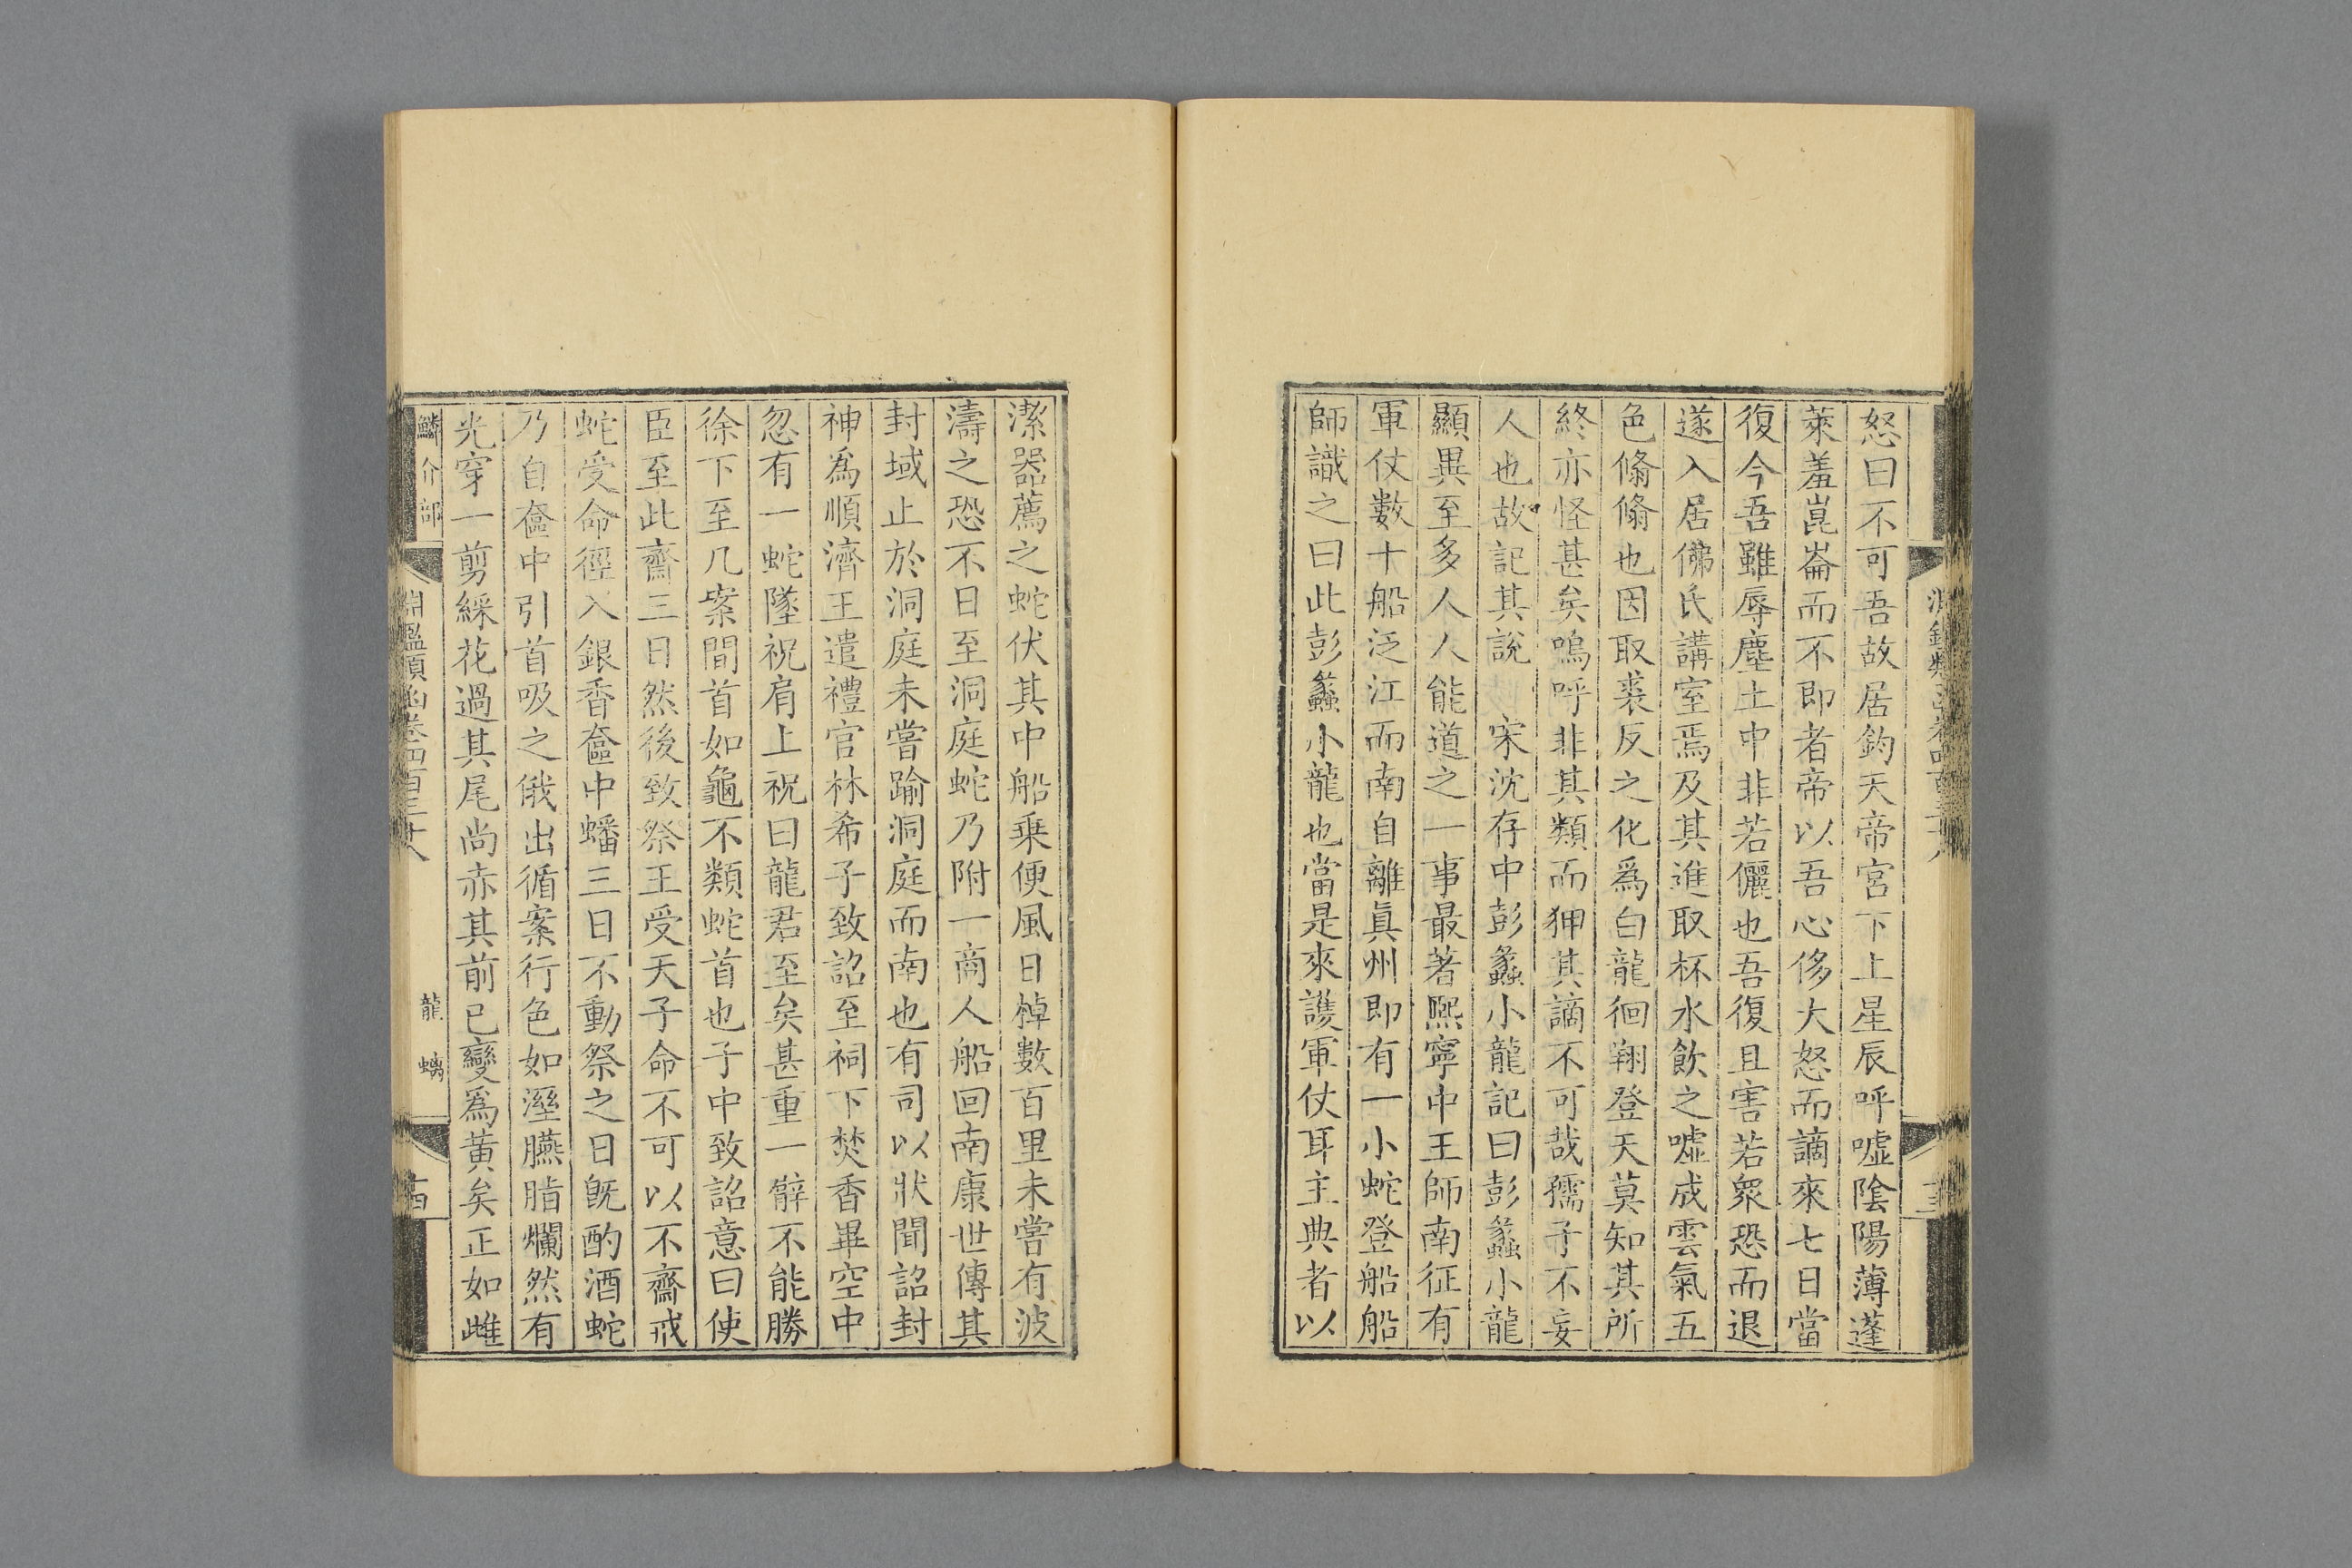 怒曰不可吾故居鈞天帝宮下上星辰呼噓陰陽薄蓬
萊羞崑崙而不即者帝以吾心侈大怒而謫來七日當
復今吾雖辱塵土中非若儷也吾復且害若衆恐而退
遂入居佛氏講室焉及其進取杯水飲之噓成雲氣五
色翛翛也因取裘反之化爲白龍徊翔登天莫知其所
終亦怪甚矣嗚呼非其類而狎其謫不可哉孺子不妄
人也故記其說 宋沈存中彭蠡小龍記曰彭蠡小龍
顯異至多人人能道之一事最著熙寧中王師南征有
軍仗數十船泛江而南自離眞州即有一小蛇登船船
師識之曰此彭蠡小龍也當是來護軍仗耳主典者以
潔器薦之蛇伏其中船乗便風日棹數百里未嘗有波
濤之恐不日至洞庭蛇乃附一商人船回南康世傳其
封域止於洞庭未嘗踰洞庭而南也有司以狀聞詔封
神爲順濟王遣禮官林希子致詔至祠下焚香畢空中
忽有一蛇墜祝肩上祝曰龍君至矣甚重一臂不能勝
徐下至几案間首如龜不類蛇首也子中致詔意曰使
臣至此齋三日然後致祭王受天子命不可以不齋戒
蛇受命徑入銀香奩中蟠三日不動祭之日旣酌酒蛇
乃自奩中引首吸之俄出循案行色如溼臙脂爛然有
光穿一剪綵花過其尾尚赤其前已變爲黃矣正如雌
鱗介部
淵鑑類函卷四百三十八
龍 螭
十四